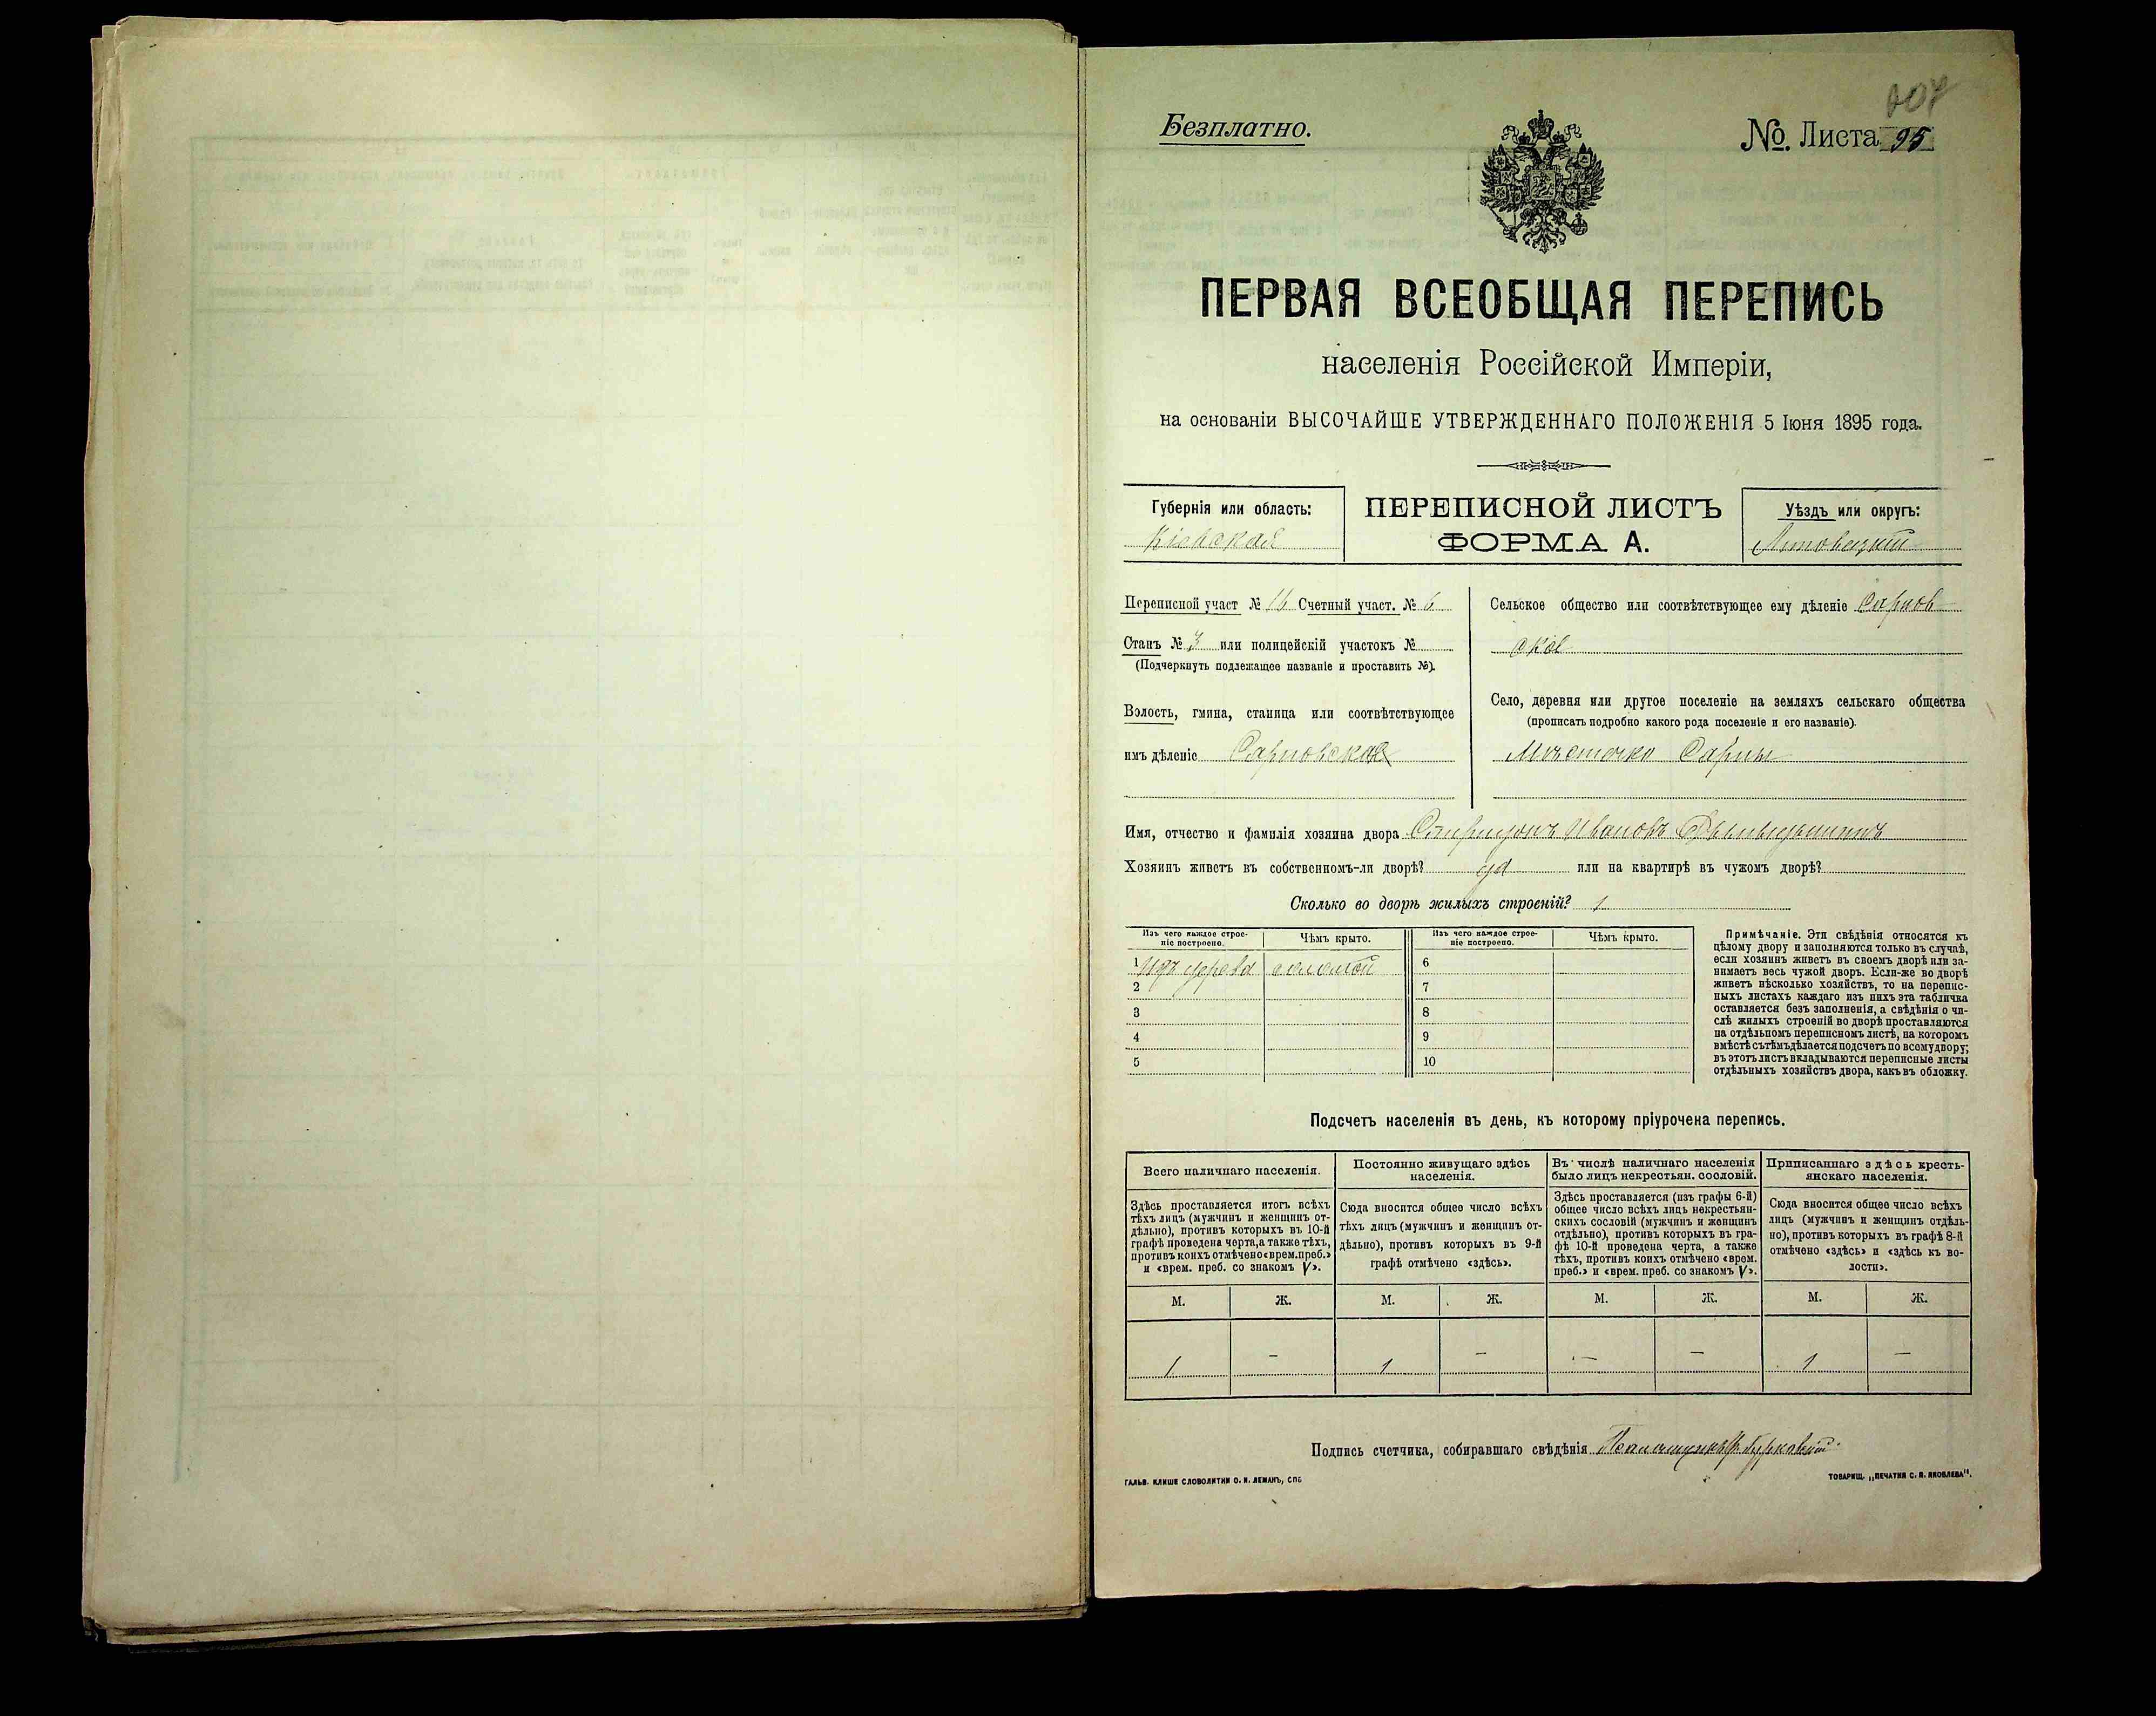 207
Безплатно.
№. Листа 95
ПЕРВАЯ ВСЕОБЩАЯ ПЕРЕПИСЬ
населенія Россійской Имперіи,
на основаніи ВЫСОЧАЙШЕ УТВЕРЖДЕННАГО ПОЛОЖЕНІЯ 5 Іюня 1895 года.
Губернія или область:
Кіевская
ПЕРЕПИСНОЙ ЛИСТЪ
ФОРМА А.
Уѣздъ или округъ:
Липовецкій
Переписной участ № 16 Счетный участ. № 6
Станъ № 3 или полицейскій участокъ №
(Подчеркнуть подлежащее названіе и проставить №).
Волость, гмина, станица или соотвѣтствующее
имъ дѣленіе
Сельское общество или соотвѣтствующее ему дѣленіе Сарнов
ское
Село, деревня или другое поселеніе на земляхъ сельскаго общества
(прописать подробно какого рода поселеніе и его названіе).
Мѣстечко Сарны
Имя, отчество и фамилія хозяина двора Спиридонъ Ивановъ
Хозяинъ живетъ въ собственномъ-ли дворѣ? да или на квартирѣ въ чужомъ дворѣ?
Сколько во дворѣ жилыхъ строеній? 1
Изъ чего каждое строе-
ніе построено.
Чѣмъ крыто.
Изъ чего каждое строе-
ніе построено.
Чѣмъ крыто.
1 Изъ дерева соломой 6
2 7
3 8
4 9
5 10
Примѣчаніе. Эти свѣдѣнія относятся къ
цѣлому двору и заполняются только въ случаѣ,
если хозяинъ живетъ въ своемъ дворѣ или за-
нимаетъ весь чужой дворъ. Если-же во дворѣ
живетъ нѣсколько хозяйствъ, то на перепис-
ныхъ листахъ каждаго изъ нихъ эта табличка
оставляется безъ заполненія, а свѣдѣнія о чи-
слѣ жилыхъ строеній во дворѣ проставляются
на отдѣльномъ переписномъ листѣ, на которомъ
вмѣстѣ съ тѣмъ дѣлается подсчетъ по всему двору;
въ этотъ листъ вкладываются переписные листы
отдѣльныхъ хозяйствъ двора, какъ въ обложку.
Подсчетъ населенія въ день, къ которому пріурочена перепись.
Всего наличнаго населенія.
Здѣсь проставляется итогъ всѣхъ
тѣхъ лицъ (мужчинъ и женщинъ от-
дѣльно), противъ которыхъ въ 10-й
графѣ проведена черта, а также тѣхъ,
противъ коихъ отмѣчено «врем. преб.»
и «врем. преб. со знакомъ V».
Постоянно живущаго здѣсь
населенія.
Сюда вносится общее число всѣхъ
тѣхъ лицъ (мужчинъ и женщинъ от-
дѣльно), противъ которыхъ въ 9-й
графѣ отмѣчено «здѣсь».
Въ числѣ наличнаго населенія
было лицъ некрестьян. сословій.
Здѣсь проставляется (изъ графы 6-й)
общее число всѣхъ лицъ некрестьян-
скихъ сословій (мужчинъ и женщинъ
отдѣльно), противъ которыхъ въ гра-
фѣ 10-й проведена черта, а также
тѣхъ, противъ коихъ отмѣчено «врем.
преб.» и «врем. преб. со знакомъ V».
Приписаннаго здѣсь кресть-
янскаго населенія.
Сюда вносится общее число всѣхъ
лицъ (мужчинъ и женщинъ отдѣль-
но), противъ которыхъ въ графѣ 8-й
отмѣчено «здѣсь» и «здѣсь къ во-
лости».
М. Ж. М. Ж. М. Ж. М. Ж.
1 — 1 — — — 1 —
Подпись счетчика, собиравшаго свѣдѣнія
ГАЛЬВ. КЛИШЕ СЛОВОЛИТНИ О. И. ЛЕМАНЪ, СПБ
ТОВАРИЩ. „ПЕЧАТНЯ С. П. ЯКОВЛЕВА".